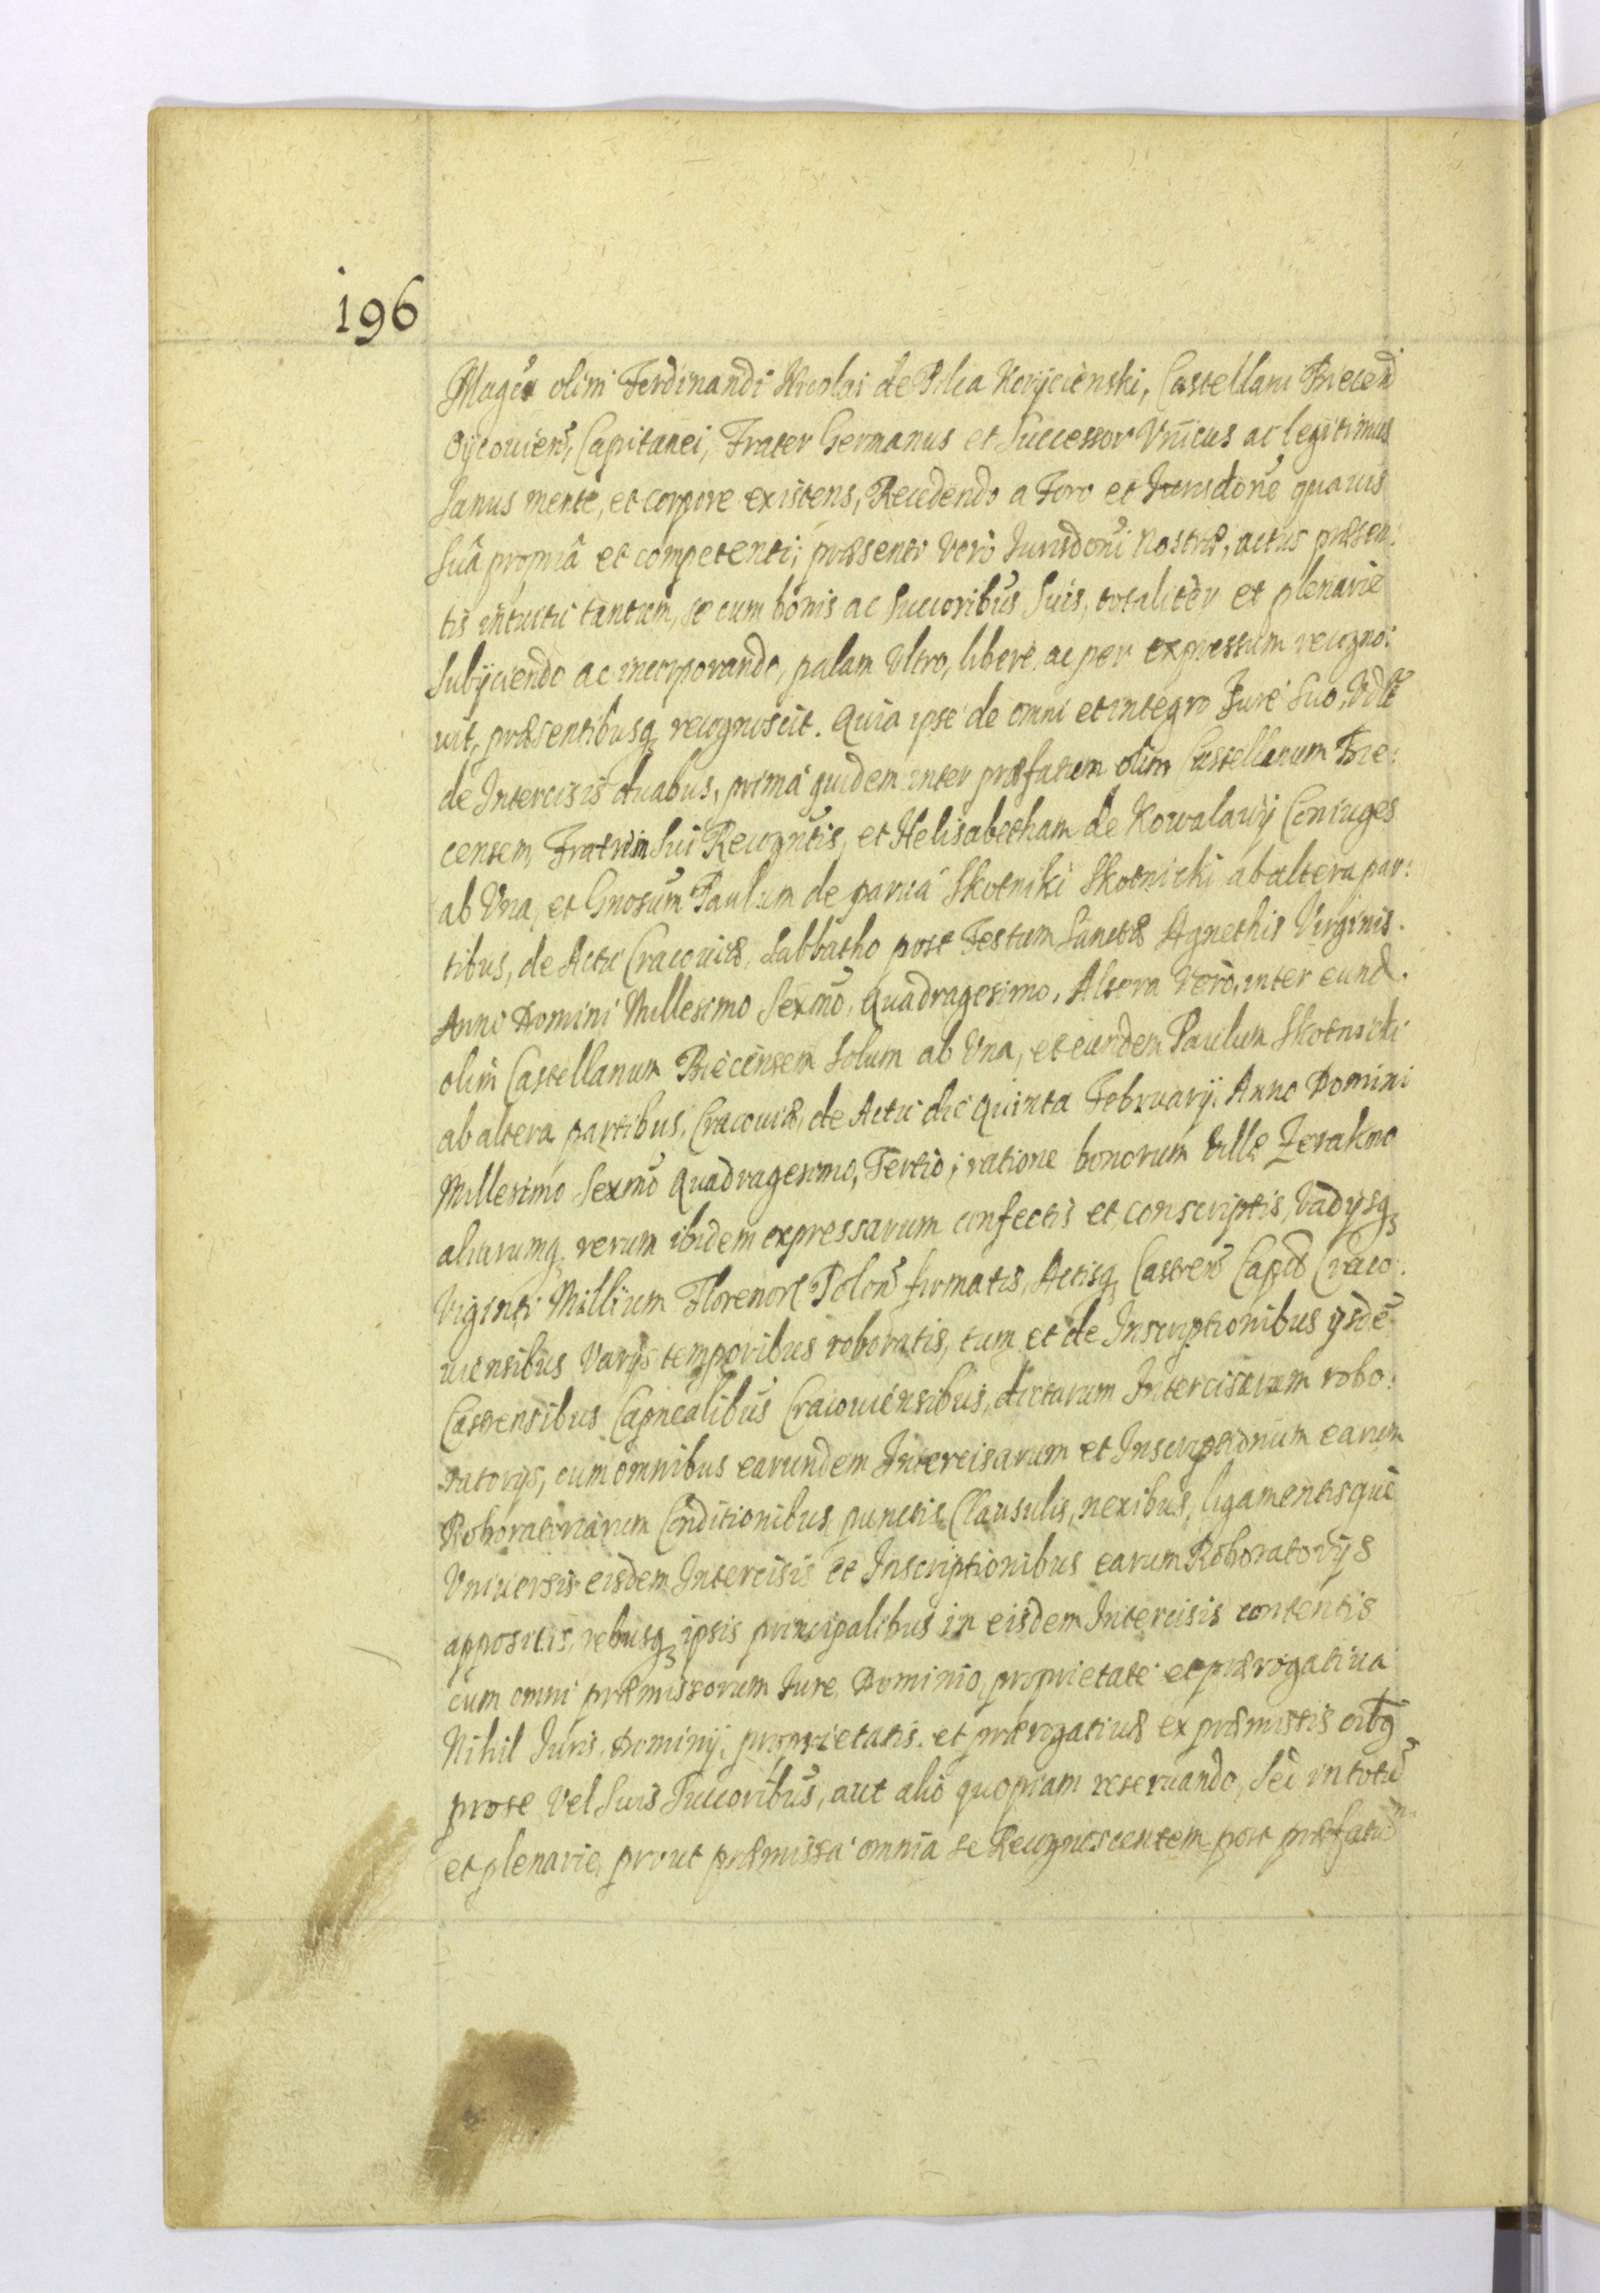 196
Magci olim Ferdinandi Nicolai de Pilca Koryciński, Castellani Biecen
Oycovien, Capitanei, Frater Germanus et Successor Vnicus ac legitimus
Sanus mente, et corpore existens, Recedendo a Foro et Jurisdone quavis
Suâ propriâ et competenti; præsenti verò Jurisdoni Nostræ, actus præsen:
tis intuitu tantum, se cum bonis ac Succoribus Suis, totaliter et plenarie
Subÿciendo ac incorporando, palam Vltro, liberè, ac per expressum recogno:
uit, præsentibusq recognoscit. Quia ipse de omni et integro Jure Suo, Vdlt
de Intercisis duabus, primâ quidem inter præfatum olim Castellanum Bie:
censem, Fratrem Sui Recogntis, et Helisabetham de Kowalowÿ Coniuges
ab Vna, et Gnosum Paulum de parua Skotniki Skotnicki ab altera par:
tibus, de Actu Cracouiæ, Sabbatho post Festum Sanctæ Agnethis Virginis.
Anno Domini Millesimo Sexmo, Quadragesimo, Altera Verò, inter eund.
olim Castellanum Biecensem Solum ab Vna, et eundem Paulum Skotnicki
ab altera partibus, Cracouiæ, de Actu die Quinta Februarÿ. Anno Domini
Millesimo Sexmo Quadragesimo, Tertio; ratione bonorum Villæ Zerakmo
aliarumq rerum ibidem expressarum confectis et conscriptis, Vadÿsq
Viginti Millium Florenor Polon firmatis, Actisq Castren Capid Craco:
uiensibus Varÿs temporibus roboratis, tum et de Inscriptionibus ÿsdē
Castrensibus Capnealibus Cracouiensibus, dictarum Intercisarum robo:
ratorÿs, cum omnibus earundem Intercisarum et Inscriptionum earum
Roboratoriarum Conditionibus punctis Clausulis, nexibus, ligamentisque
Vniuersis eisdem Intercisis et Inscriptionibus earum Roboratorÿs
appositis, rebusq ipsis principalibus in eisdem Intercisis contentis
cum omni præmissorum Jure, Dominio, proprietate et prærogatiua
Nihil Juris, Dominÿ, proprietatis et prærogatiuæ ex præmissis oibq
pro se Vel Suis Succoribus, aut alio quopiam reseruando, Sed in totū
et plenarie, prout præmissa omnia se Recognoscentem post præfatū